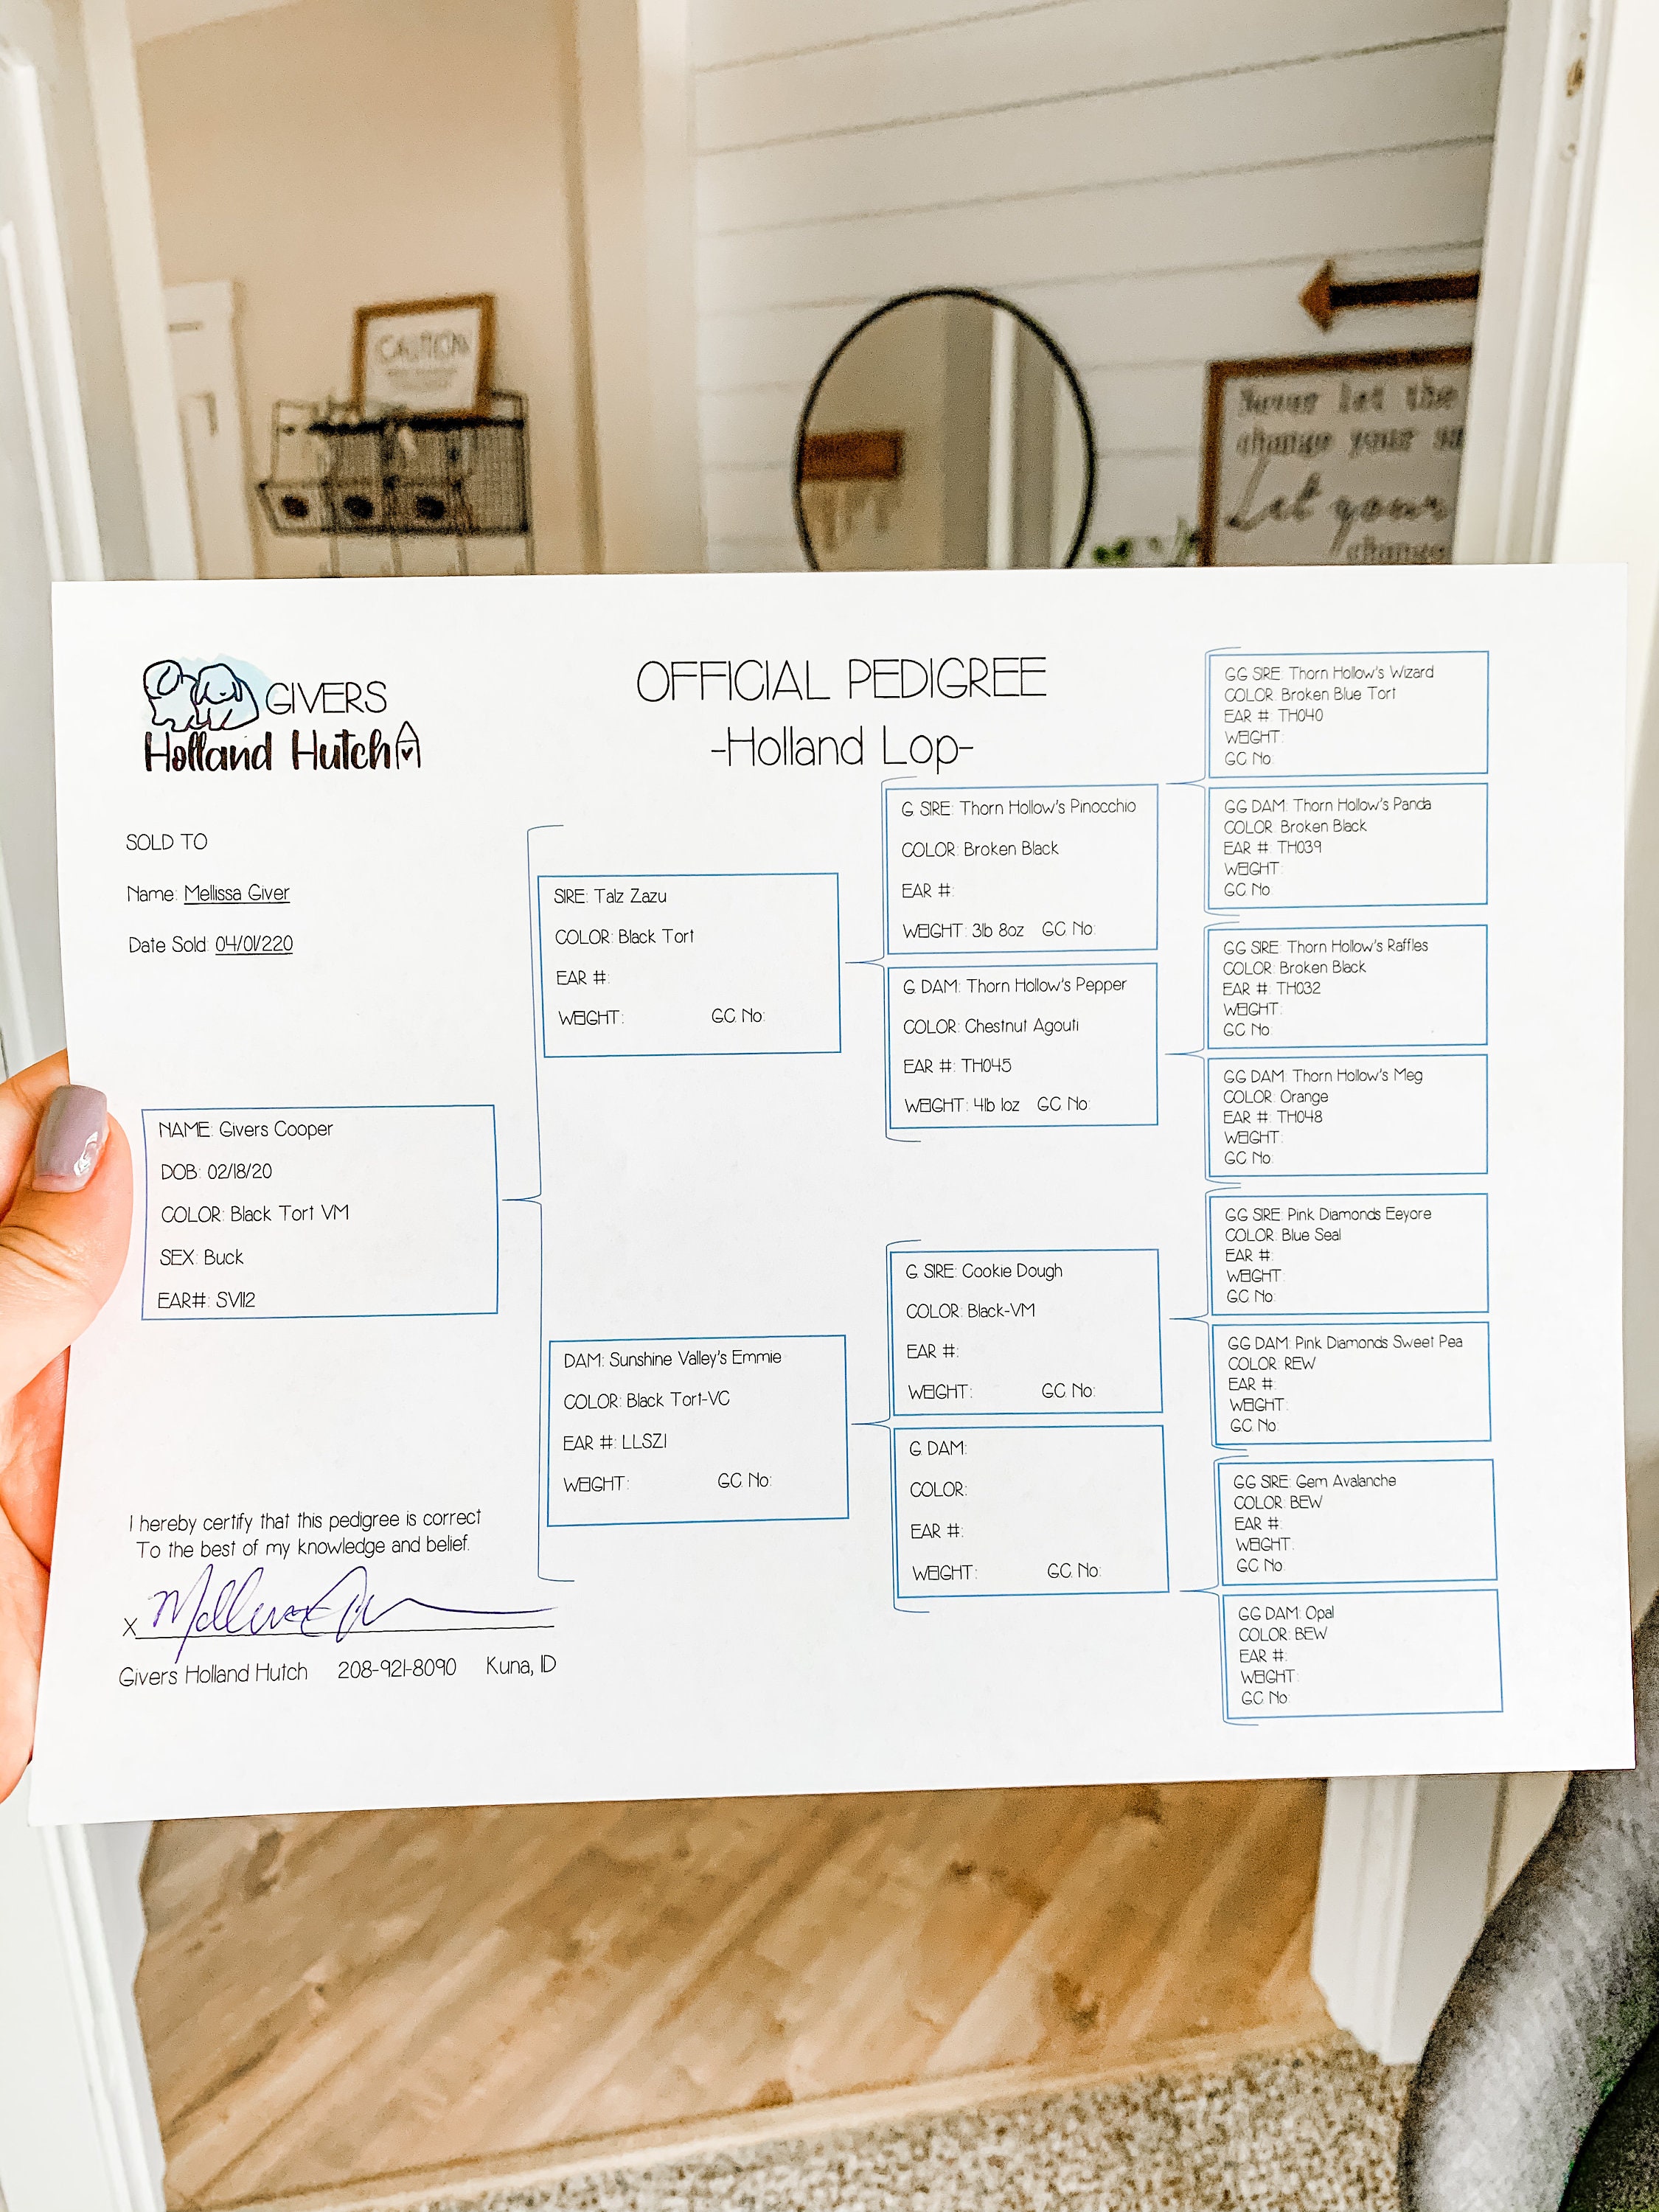 CAUTION
Never let the
change your
Let your
change
GIVERS
Holland Hutch
OFFICIAL PEDIGREE
-Holland Lop-
SOLD TO
Name: Mellissa Giver
Date Sold: 04/01/220
NAME: Givers Cooper
DOB: 02/18/20
COLOR: Black Tort VM
SEX: Buck
EAR#: SV112
I hereby certify that this pedigree is correct
To the best of my knowledge and belief.
X
Givers Holland Hutch 208-921-8090 Kuna, ID
SIRE: Talz Zazu
COLOR: Black Tort
EAR #:
WEIGHT: GC No:
DAM: Sunshine Valley's Emmie
COLOR: Black Tort-VC
EAR #: LLSZ1
WEIGHT: GC No:
G SIRE: Thorn Hollow's Pinocchio
COLOR: Broken Black
EAR #:
WEIGHT: 3lb 8oz GC No:
G DAM: Thorn Hollow's Pepper
COLOR: Chestnut Agouti
EAR #: TH045
WEIGHT: 4lb 1oz GC No:
G SIRE: Cookie Dough
COLOR: Black-VM
EAR #:
WEIGHT: GC No:
G DAM:
COLOR:
EAR #:
WEIGHT: GC No:
GG SIRE: Thorn Hollow's Wizard
COLOR: Broken Blue Tort
EAR #: TH040
WEIGHT:
GC No:
GG DAM: Thorn Hollow's Panda
COLOR: Broken Black
EAR #: TH039
WEIGHT:
GC No:
GG SIRE: Thorn Hollow's Raffles
COLOR: Broken Black
EAR #: TH032
WEIGHT:
GC No:
GG DAM: Thorn Hollow's Meg
COLOR: Orange
EAR #: TH048
WEIGHT:
GC No:
GG SIRE: Pink Diamonds Eeyore
COLOR: Blue Seal
EAR #:
WEIGHT:
GC No:
GG DAM: Pink Diamonds Sweet Pea
COLOR: REW
EAR #:
WEIGHT:
GC No:
GG SIRE: Gem Avalanche
COLOR: BEW
EAR #:
WEIGHT:
GC No:
GG DAM: Opal
COLOR: BEW
EAR #:
WEIGHT:
GC No: